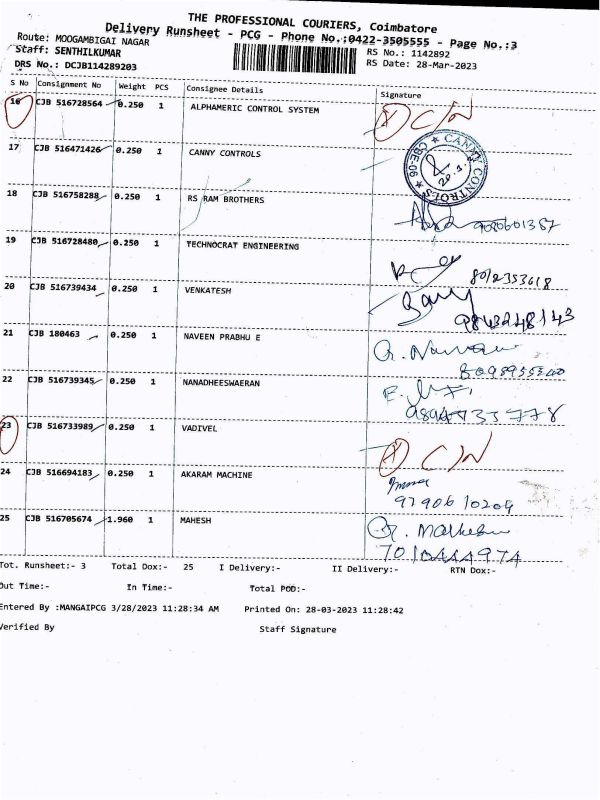 THE PROFESSIONAL COURIERS, Coimbatore
Delivery Runsheet - PCG - Phone No.:0422-3505555 - Page No.:3
Route: MOOGAMBIGAI NAGAR RS No.: 1142892
Staff: SENTHILKUMAR RS Date: 28-Mar-2023
DRS No.: DCJB114289203
S No Consignment No Weight PCS Consignee Details Signature
16 CJB 516728564 0.250 1 ALPHAMERIC CONTROL SYSTEM C/N
17 CJB 516471426 0.250 1 CANNY CONTROLS CANNY CONTROLS CBE-06
18 CJB 516758288 0.250 1 RS RAM BROTHERS 9080601387
19 CJB 516728480 0.250 1 TECHNOCRAT ENGINEERING 8012353618
20 CJB 516739434 0.250 1 VENKATESH 9843248143
21 CJB 180463 0.250 1 NAVEEN PRABHU E
22 CJB 516739345 0.250 1 NANADHEESWAERAN
23 CJB 516733989 0.250 1 VADIVEL C/N
24 CJB 516694183 0.250 1 AKARAM MACHINE 9790610209
25 CJB 516705674 1.960 1 MAHESH
Tot. Runsheet:- 3 Total Dox:- 25 I Delivery:- II Delivery:- RTN Dox:-
Out Time:- In Time:- Total POD:-
Entered By :MANGAIPCG 3/28/2023 11:28:34 AM Printed On: 28-03-2023 11:28:42
Verified By Staff Signature